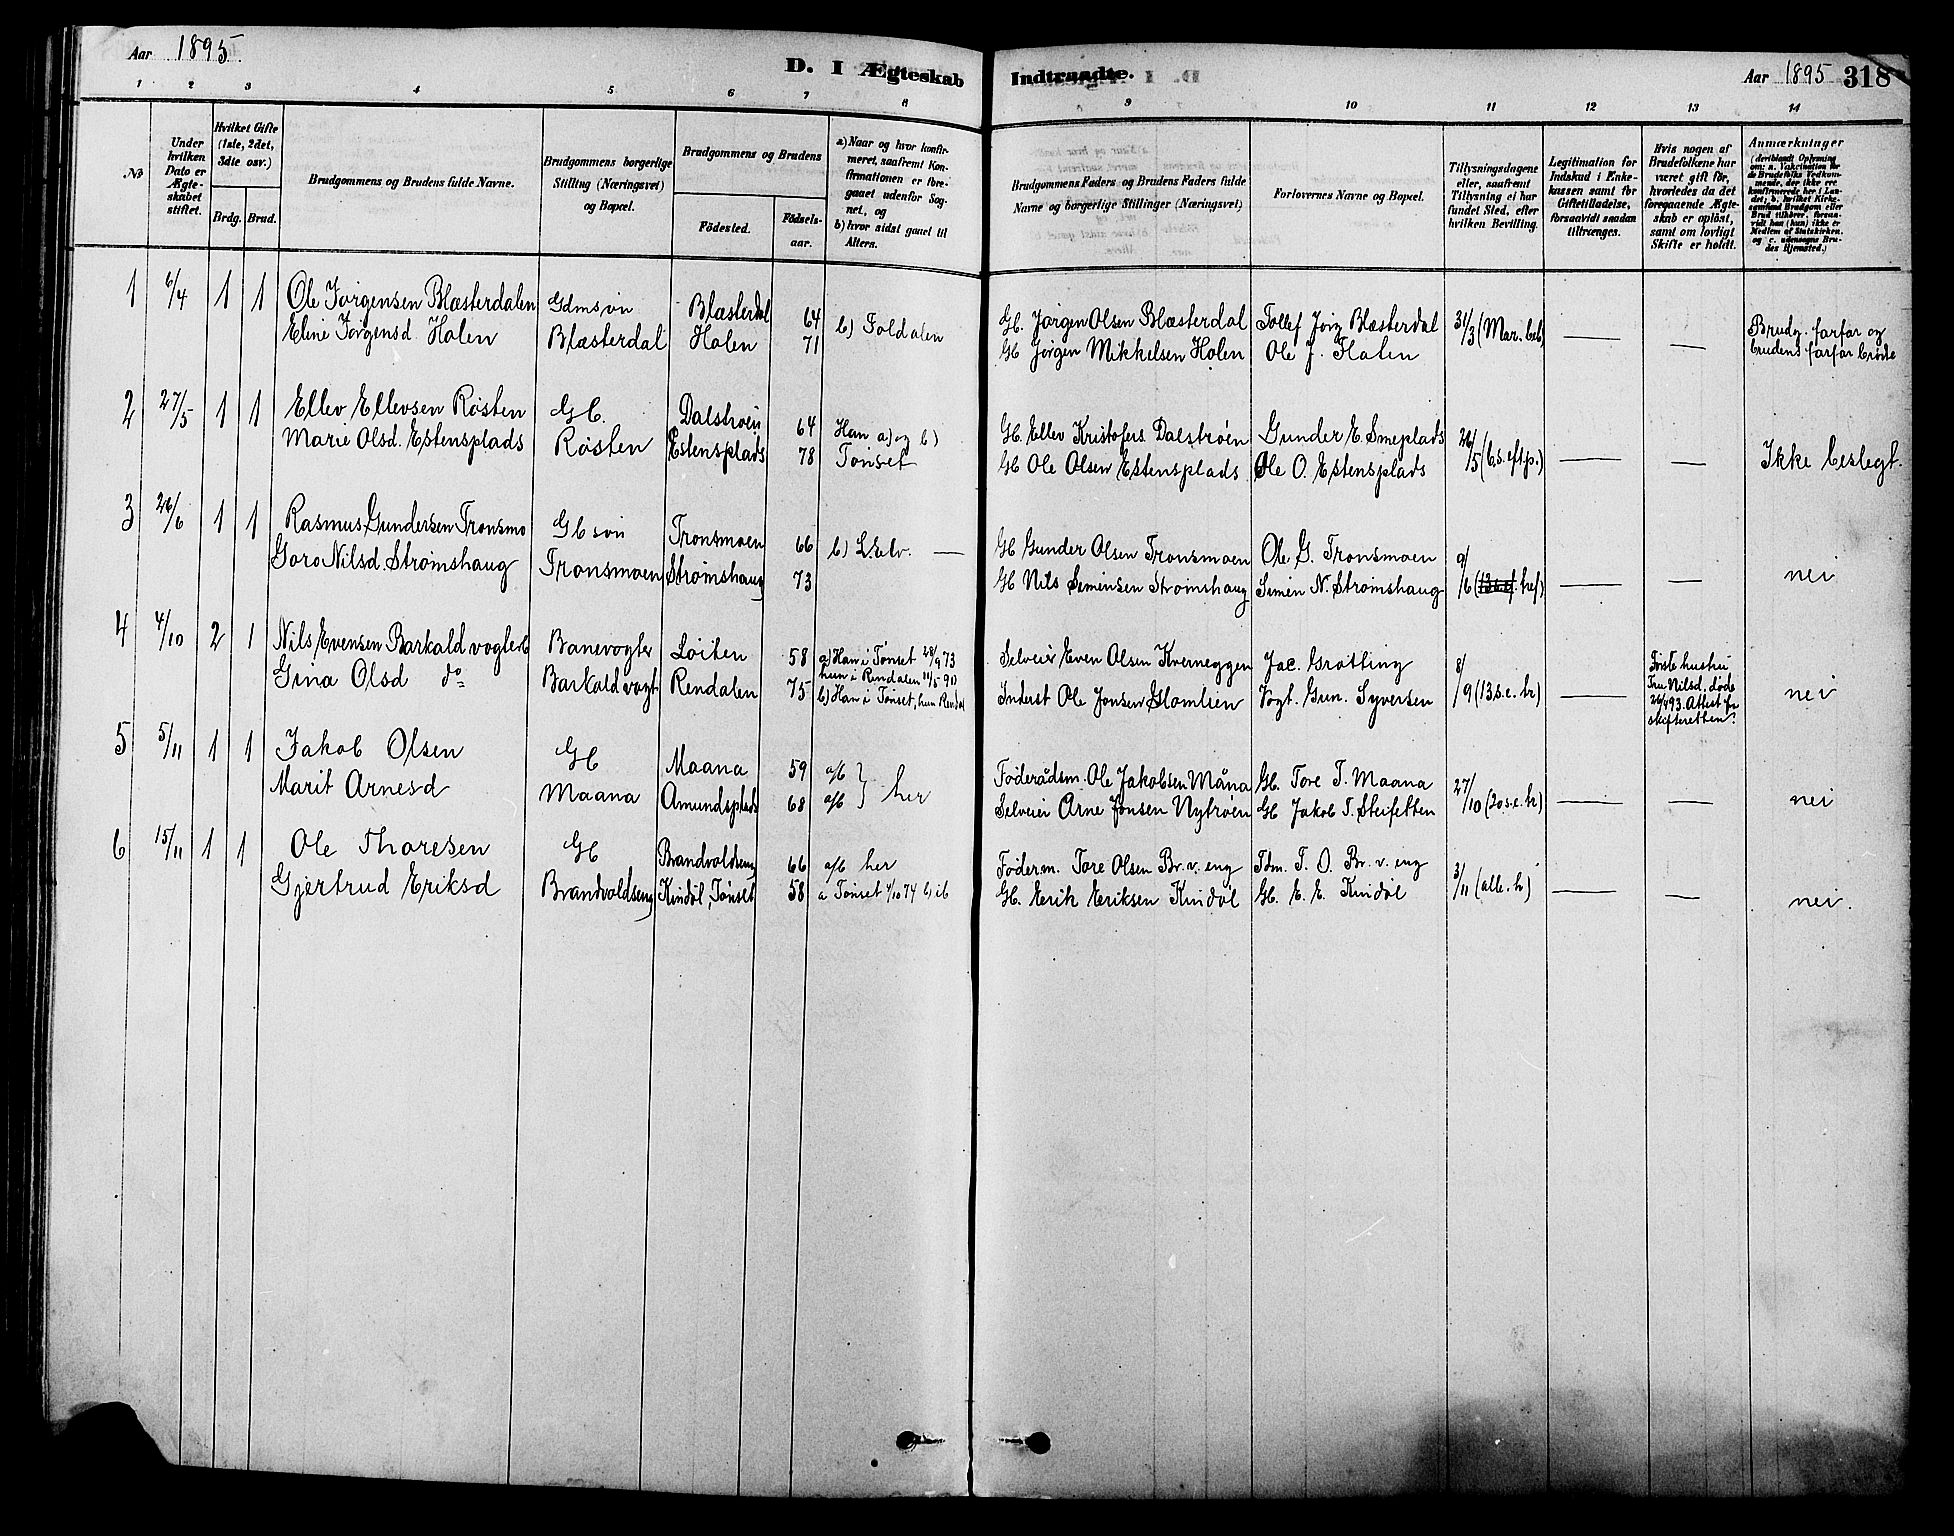 Aar 1895.
D. I Ægteskab Indtraadte.
Aar 1895 318
1 2 3 4 5 6 7 8 9 10 11 12 13 14
No
Under hvilken Dato er Ægteskabet stiftet.
Hvilket Gifte (1ste, 2det, 3die osv.)
Brdg. Brud.
Brudgommens og Brudens fulde Navne.
Brudgommens borgerlige Stilling (Næringsvei) og Bopæl.
Brudgommens og Brudens
Födested.
Födsels-aar.
a) Naar og hvor konfirmeret, saafremt Konfirmationen er foregaaet udenfor Sognet, og
b) hvor sidst gaaet til Alters.
Brudgommens Faders og Brudens Faders fulde Navne og borgerlige Stillinger (Næringsvei)
Forlovernes Navne og Bopæl.
Tillysningsdagene eller, saafremt Tillysning ei har fundet Sted, efter hvilken Bevilling.
Legitimation for Indskud i Enkekassen samt for Giftetilladelse, forsaavidt saadan tiltrænges.
Hvis nogen af Brudefolkene har været gift för, hvorledes da det foregaaende Ægteskab er oplöst, samt om lovligt Skifte er holdt.
Anmærkninger
1 6/4 1 1 Ole Jørgensen Blæsterdalen Gdmsøn Blæsterdal 64 b) Foldalen Gb. Jørgen Olsen Blæsterdal Tollef Jörg Blæsterdal 31/3 (Mar. beb) — — Brudg. farfar og
Eline Jørgensd Holen Blæsterdal Holen 71 Gb Jørgen Mikkelsen Holen Ole J. Holen brudens farfar brødre
2 27/5 1 1 Ellev Ellevsen Røsten Gb. Dalstrøen 64 Han a) og b) Gb. Ellev Kristofers. Dalstrøen Gunder E. Smeplads 26/5 (6.s. eft.p.) — — Ikke beslegt.
Marie Olsd. Estensplads Røsten Estensplads 78 Tønset Gb Ole Olsen Estensplads Ole O. Estensplads
3 26/6 1 1 Rasmus Gundersen Tronsmo Gb søn Tronsmoen 66 b) L.Elv. — Gb Gunder Olsen Tronsmoen Ole G. Tronsmoen 9/6 — — nei
Goro Nilsd. Strømshaug Tronsmoen Strømshaug 73 Gb Nils Simensen Strømshaug Simen N. Strømshaug
4 4/10 2 1 Nils Evensen Barkald vogterb Banevogter Løiten 58 a) Han i Tønset 28/9 73 Selveier Even Olsen Kverneggen Jac. Grøtting 8/9 (13.s.e.tr) — Første hustru
Gina Olsd do Barkald vogt. Rendalen 75 hun i Rendalen 11/5 90 Inderst Ole Jonsen Glomlien Vogt. Gun. Syversen Tru Nilsd. døde nei
b) Han i Tønset, hun Rendal 26/4 93. Attest fr
skifteretten.
5 5/11 1 1 Jakob Olsen Gb Maana 59 a/b } her Føderådsm. Ole Jakobsen Måna Gb. Tore T. Maana 27/10 (20s.e.tr) — — nei
Marit Arnesd Maana Amundsplads 68 a/b Selveier Arne Jonsen Nytrøen Gb Jakob T. Steifetten
6 15/11 1 1 Ole Thoresen Gb Brandvoldseng 66 a/b her Føderm. Tore Olsen Br. v. eng Fdm. T. O. Br. v. eng 3/11 (alle. h) — — nei.
Gjertrud Eriksd Brandvoldseng Kindøl, Tønset 58 a Tønset 4/10 74 b) ib Gb. Erik Eriksen Kindøl Gb. E. E. Kindøl